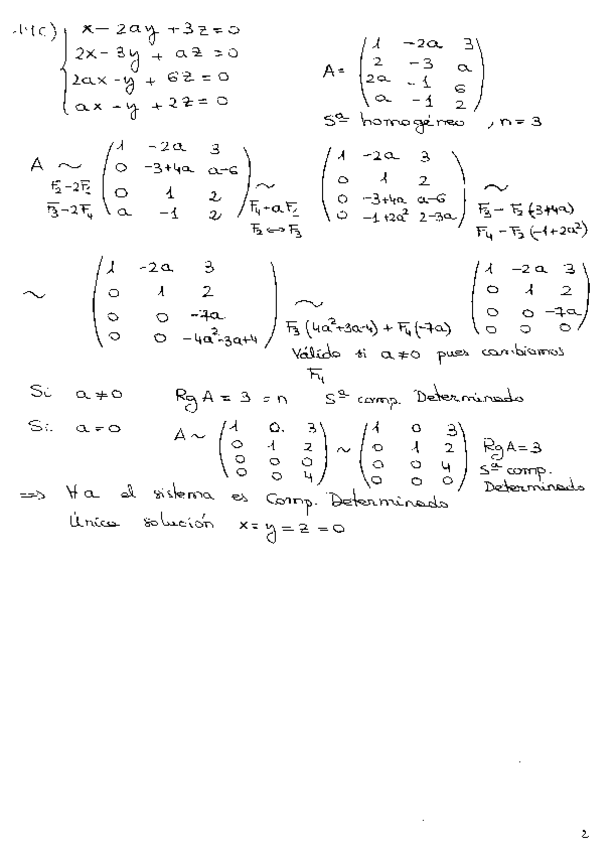 1.1(c) { x - 2ay + 3z = 0
2x - 3y + az = 0
2ax - y + 6z = 0
ax - y + 2z = 0
A = ( 1 -2a 3
2 -3 a
2a -1 6
a -1 2 )
Sª homogéneo , n = 3
A ~ F2-2F1 F3-2F4 ( 1 -2a 3
0 -3+4a a-6
0 1 2
a -1 2 )
~ F4-aF1 F2↔F3 ( 1 -2a 3
0 1 2
0 -3+4a a-6
0 -1+2a² 2-3a )
~ F3 - F2(3+4a)
F4 - F2(-1+2a²)
~ ( 1 -2a 3
0 1 2
0 0 -7a
0 0 -4a²-3a+4 )
~ F3(4a²+3a-4) + F4(-7a)
( 1 -2a 3
0 1 2
0 0 -7a
0 0 0 )
Válido si a≠0 pues cambiamos
F4
Si a≠0 RgA = 3 = n Sª comp. Determinado
Si a=0 A ~ ( 1 0 3
0 1 2
0 0 0
0 0 4 ) ~ ( 1 0 3
0 1 2
0 0 4
0 0 0 ) RgA=3
Sª comp.
Determinado
⇒ ∀a el sistema es Comp. Determinado
Única solución x=y=z=0
2